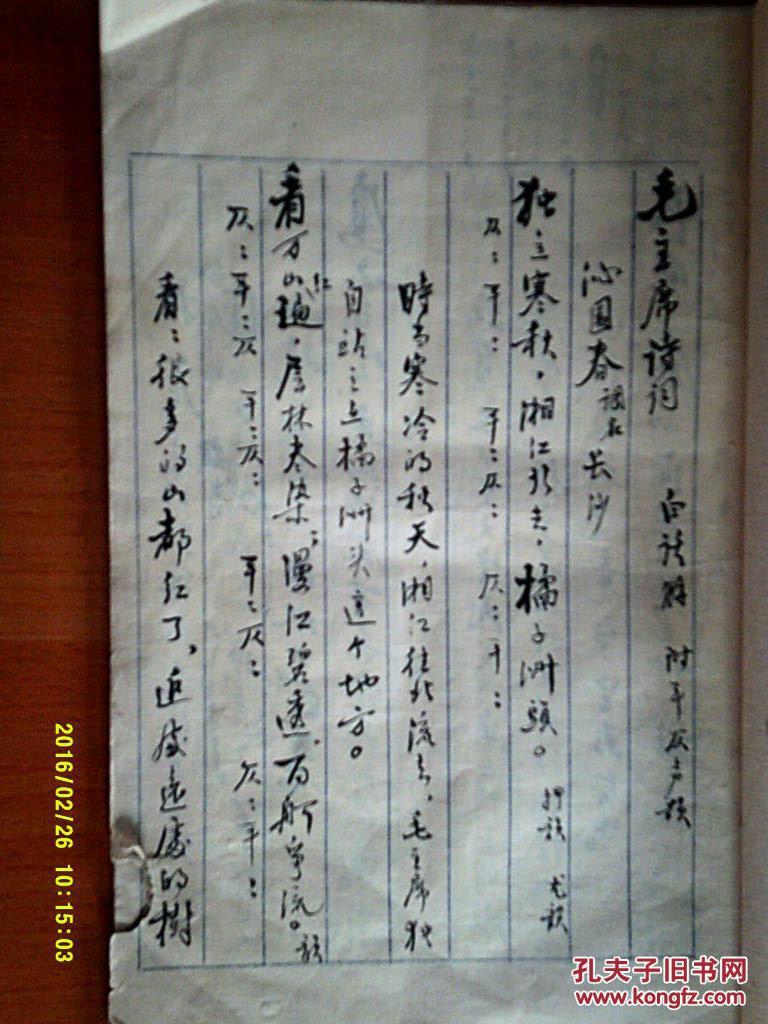 毛主席诗词 白话解 附平仄声韵
沁园春 词名 长沙
独立寒秋，湘江北去，橘子洲頭。 押韵 尤韵
仄：平： 平：仄： 仄：平：
時当寒冷的秋天，湘江往北流去，毛主席独
自站立在橘子洲头这个地方。
看万山红遍，层林尽染；漫江碧透，百舸争流。韵
仄：平：仄 平：仄： 平：仄： 仄：平：
看：很多的山都红了，近处远处的樹
2016/02/26 10:15:03
孔夫子旧书网
www.kongfz.com